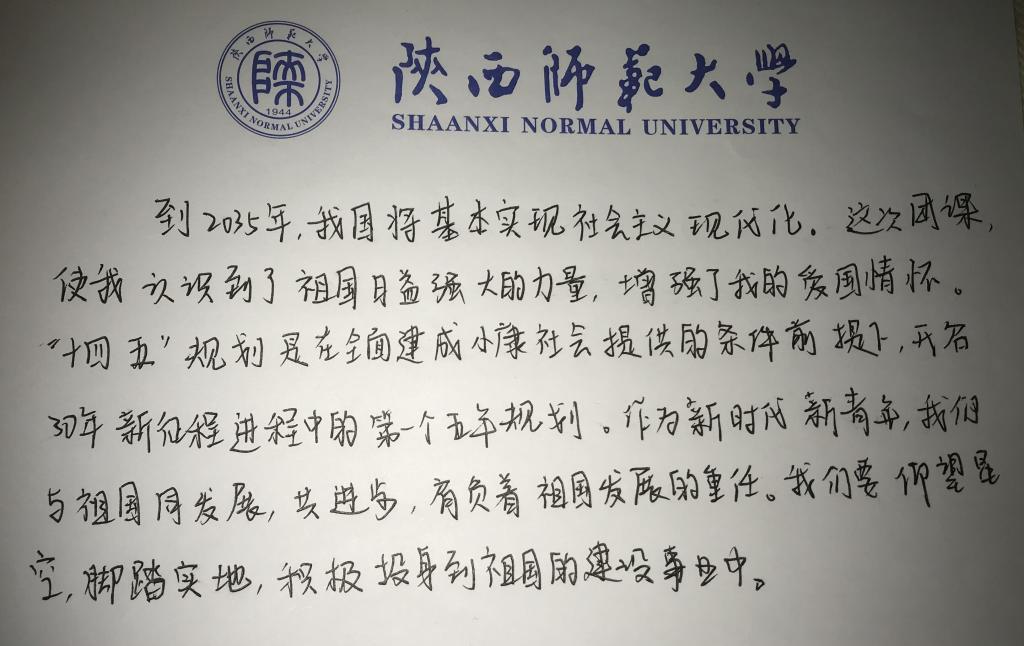 陕西师范大学
SHAANXI NORMAL UNIVERSITY
1944
陕西師範大學
SHAANXI NORMAL UNIVERSITY
到2035年,我国将基本实现社会主义现代化。这次团课,
使我认识到了祖国日益强大的力量,增强了我的爱国情怀。
“十四五”规划是在全面建成小康社会提供的条件前提下,开启
30年新征程进程中的第一个五年规划。作为新时代新青年,我们
与祖国同发展,共进步,肩负着祖国发展的重任。我们要仰望星
空,脚踏实地,积极投身到祖国的建设事业中。